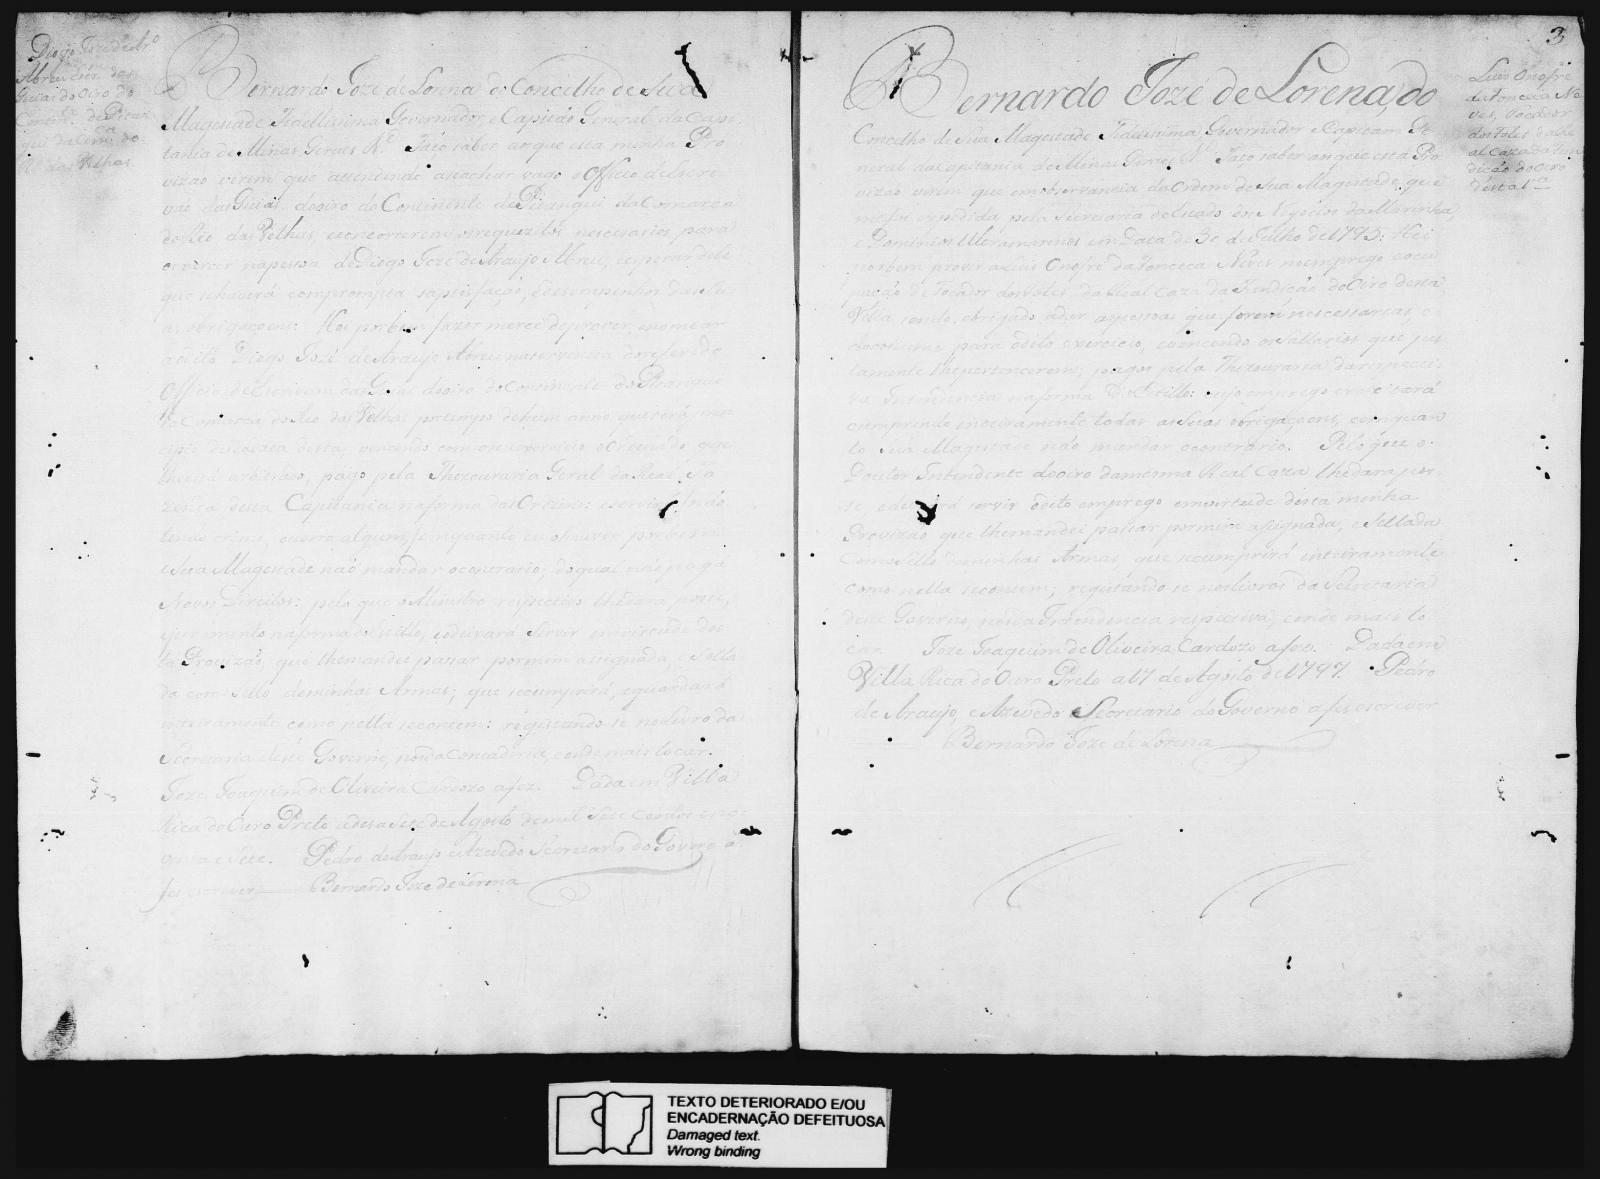 Diogo Joze de Ar.º
Abreu Escr.m das
Guias do Oiro do
Contin.te de Pitan
gui da Com.ca do
Rio das Velhas
Bernardo Joze de Lorena do Concelho de Sua
Magestade Fidellissima Governador, e Capitão General da Capi
tania de Minas Geraes &.ª Faço saber aos que esta minha Pro
vizão virem que attendendo a se achar vago o Officio de Escri
vão das Guias do oiro do Continente de Pitangui da Comarca
do Rio das Velhas, e concorrerem os requezitos necessarios para
o exercer na pessoa de Diogo Joze de Araujo Abreu, e esperar delle
que se haverá com prompta satisfação, e desempenho das Su
as obrigaçoens: Hei por bem fazer mercê de prover, e nomear
ao dito Diogo Jozé de Araujo Abreu na serventia do referido
Officio de Escrivam das Guias do oiro do Continente do Pitangui
da Comarca do Rio das Velhas por tempo de hum anno, que terá prin
cipio da data desta, vencendo com o exercicio o Ordenado que
lhe está arbitrado, pago pela Thezouraria Geral da Real Fa
zenda desta Capitania na forma das Ordens: e servirá não
tendo crime, ou erro algum, emquanto eu o houver por bem
e Sua Magestade não mandar o contrario, do qual não paga
Novos Direitos: pelo que o Ministro respectivo lhe dará posse,
e juramento na forma do Estillo, e deixará Servir em virtude des
ta Provizão, que lhe mandei passar por mim assignada, e Sella
da com o Sello de minhas Armas; que se cumprirá, e guardará
inteiramente como nella se contem: registando-se no Livro da
Secretaria deste Governo, no da Contadoria, e onde mais tocar.
Joze Joaquim de Oliveira Cardozo a fez. Dada em Villa
Rica do Ouro Preto a desasete de Agosto de mil Sete Centos e no
venta e Sete. Pedro de Araujo e Azevedo Secretario do Governo a
fes escrever Bernardo Joze de Lorena
3
Luis Onofre
da Fonceca Ne
ves, Tocador
dos Foles da Re
al Caza da Fun
dição do Oiro
desta V.ª
Bernardo Jozé de Lorena, do
Concelho de Sua Magestade Fidelissima, Governador e Capitam Ge
neral da Capitania de Minas Geraes &.ª Faço saber aos que esta Pro
vizão virem que em observancia da Ordem de Sua Magestade, que
me foi expedida pela Secretaria de Estado dos Negocios da Marinha,
e Dominios Ultramarinos em Data de 30 de Julho de 1795: Hei
por bem prover a Luis Onofre da Fonceca Neves no emprego e occu
pação de Tocador dos Foles da Real Caza da Fundição do Oiro desta
Villa sendo obrigado a dar as pessoas que forem nescessarias, e
do costume para o dito exercicio, vencendo os Sallarios que jus
tamente lhe pertencerem; pagos pela Thezouraria da respecti
va Intendencia na forma do Estillo: cujo emprego exercitará
cumprindo inteiramente todas as Suas obrigaçoens, emquan
to Sua Magestade não mandar o contrario. Pelo que o
Doutor Intendente do oiro da mesma Real Caza lhe dará pos
se, e deixará servir o dito emprego em virtude desta minha
Provizão que lhe mandei passar por mim assignada, e Sellada
com o Sello de minhas Armas, que se cumprirá inteiramente
como nella se contem; registando-se nos livros da Secretaria
deste Governo, no da Intendencia respectiva, e onde mais to
car. Joze Joaquim de Oliveira Cardozo a fez. Dada em
Villa Rica do Ouro Preto a 17 de Agosto de 1797. Pedro
de Araujo, e Azevedo Secretario do Governo a fes escrever
Bernardo Joze de Lorena
TEXTO DETERIORADO E/OU
ENCADERNAÇÃO DEFEITUOSA
Damaged text.
Wrong binding